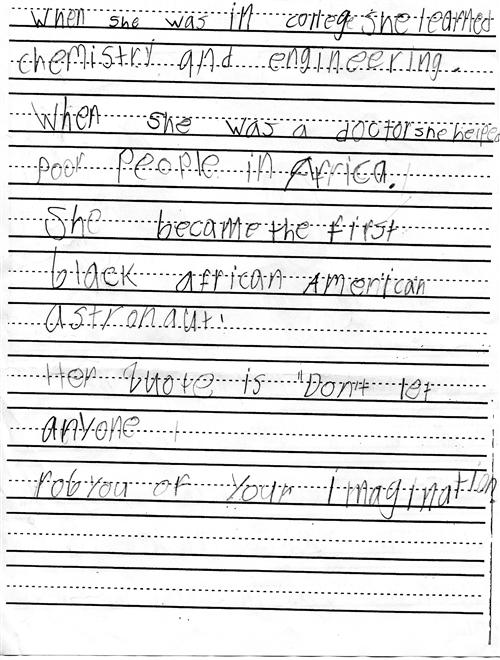 When she was in colleg she learned
chemistry and engineering.
When she was a doctor she helped
poor people in Africa.
She became the first
black african American
astronaut.
Her quote is "Don't let
anyone
rob you of your imagination